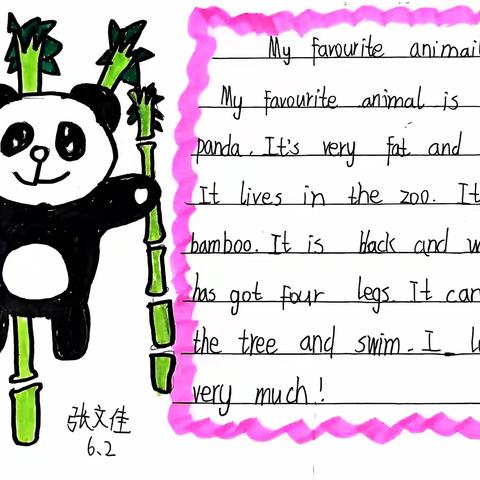 My favourite animail
My favourite animal is
panda. It's very fat and
It lives in the zoo. It
bamboo. It is black and w
has got four legs. It can
the tree and swim. I l
very much!
张文佳
6.2